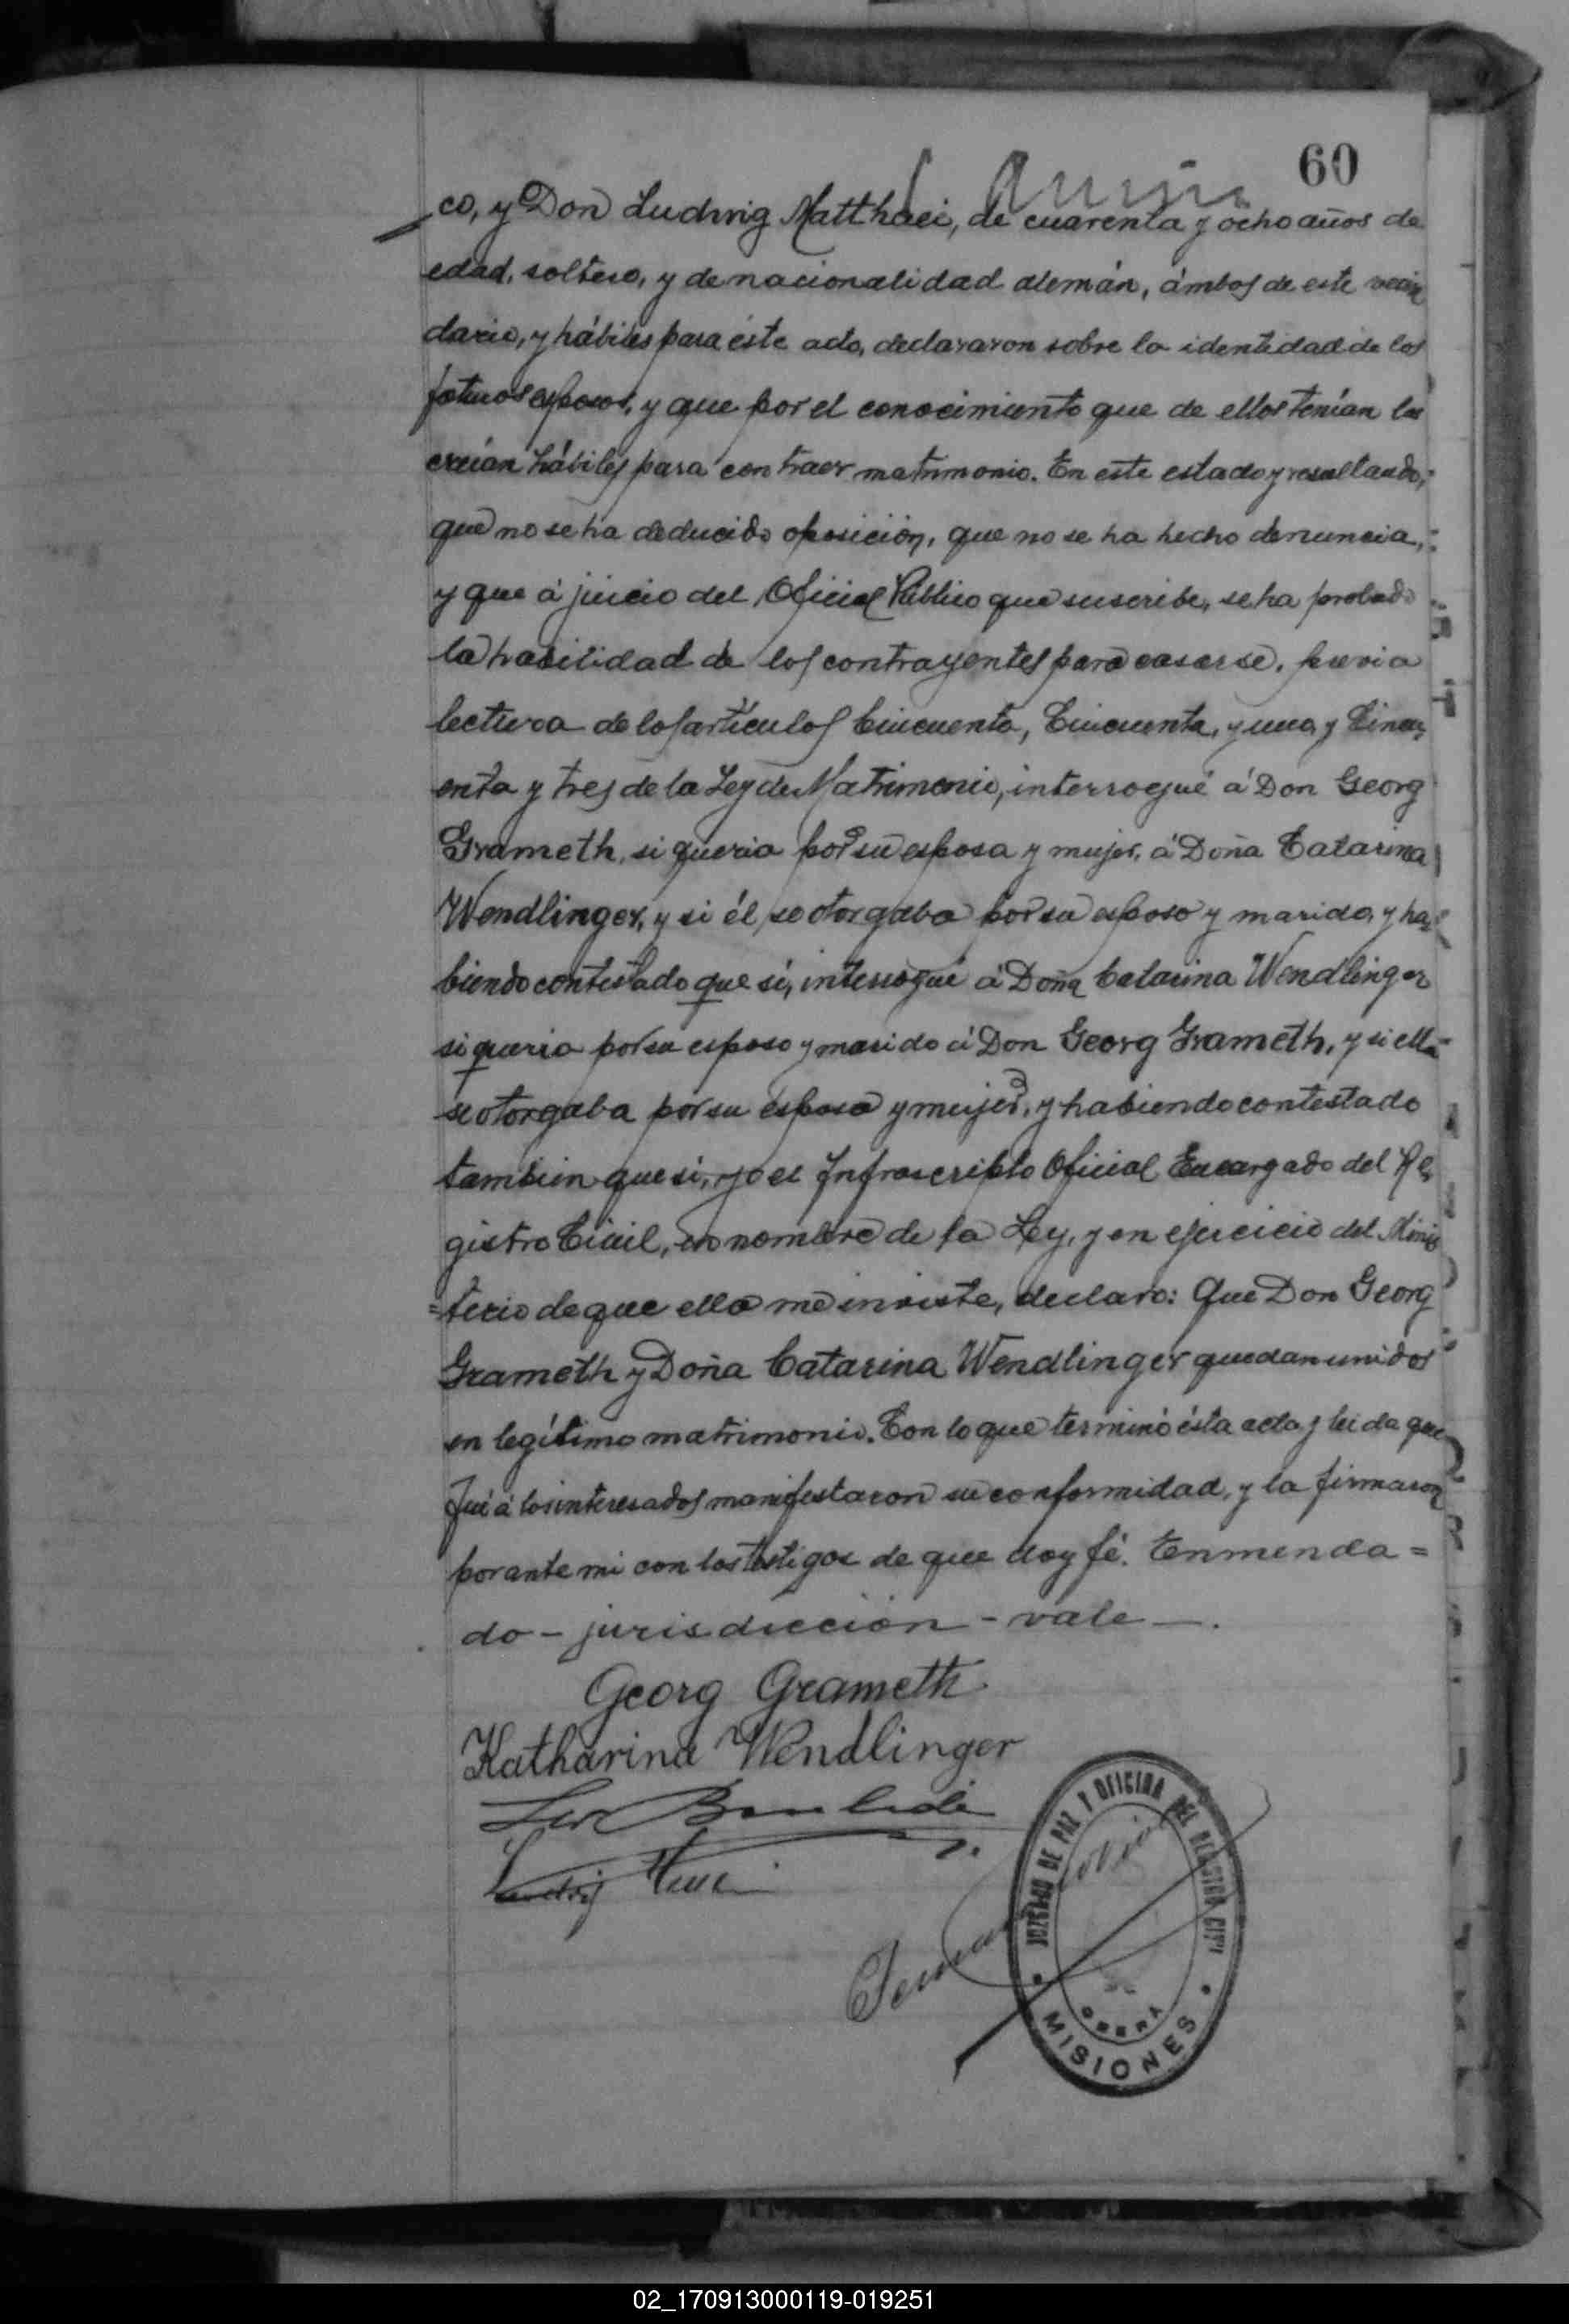 60
co, y Don Ludwig Matthaei, de cuarenta y ocho años de
edad, soltero, y de nacionalidad alemán, ámbos de este vecin
dario, y hábiles para éste acto, declararon sobre la identidad de los
futuros esposos, y que por el conocimiento que de ellos tenían los
creían hábiles para contraer matrimonio. En este estado y resultando,
que no se ha deducido oposición, que no se ha hecho denuncia,
y que á juicio del Oficial Público que suscribe, se ha probado
la habilidad de los contrayentes para casarse, previa
lectura de los artículos Cincuenta, Cincuenta, y uno, y Cincu,
enta y tres de la Ley de Matrimonio, interrogué á Don Georg
Grameth, si queria por su esposa y mujer, á Doña Catarina
Wendlinger, y si él, se otorgaba por su esposo y marido, y ha,
biendo contestado que sí, interrogué á Doña Catarina Wendlinger
si queria por su esposo y marido á Don Georg Grameth, y si ella
se otorgaba por su esposa y mujer, y habiendo contestado
tambien que sí, yo el Infrascripto Oficial Encargado del Re,
gistro Civil, en nombre de la Ley, y en ejercicio del Minis
=terio de que ella me inviste, declaro: Que Don Georg
Grameth y Doña Catarina Wendlinger quedan unidos
en legítimo matrimonio. Con lo que terminó ésta acta y leida que
fué á los interesados manifestaron su conformidad, y la firmaron
por ante mi con los testigos de que doy fé. Enmenda=
do - jurisdiccion - vale -.
Georg Grameth
Katharina Wendlinger
Ludwig
JUZGADO DE PAZ Y OFICINA DEL REGISTRO CIVIL
OBERA
MISIONES
02_170913000119-019251